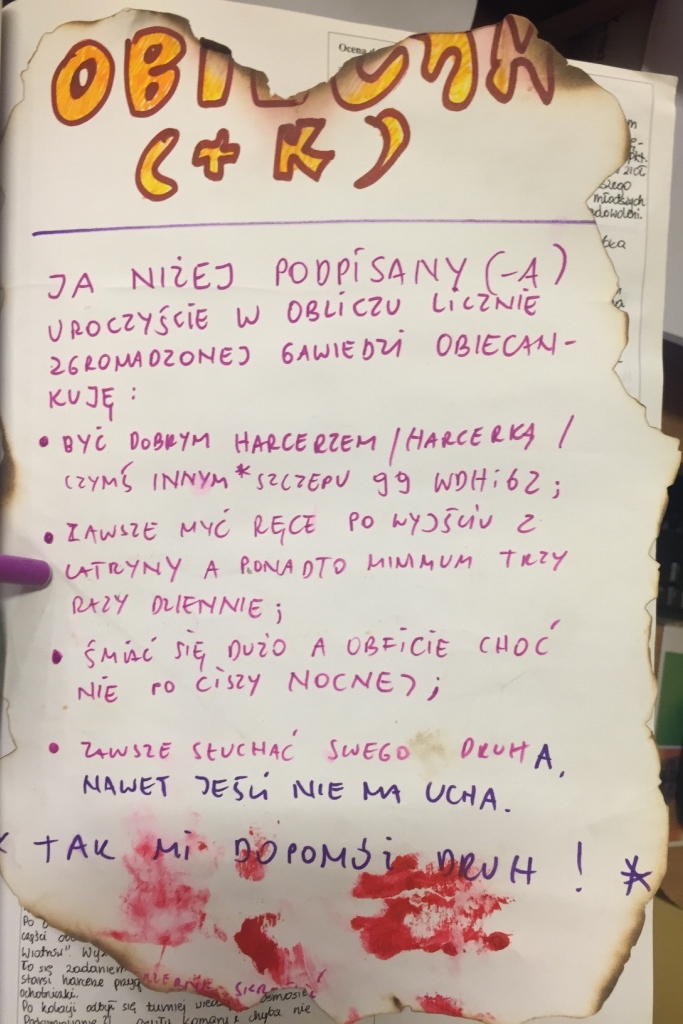 Ocena
(+K)
JA NIŻEJ PODPISANY (-A)
UROCZYŚCIE W OBLICZU LICZNIE
ZGROMADZONEJ GAWIEDZI OBIECAN-
KUJĘ:
• BYĆ DOBRYM HARCERZEM/HARCERKĄ/
CZYMŚ INNYM* SZCZEPU 99 WDHiGZ;
• ZAWSZE MYĆ RĘCE PO WYJŚCIU Z
LATRYNY A PONADTO MINMUM TRZY
RAZY DZIENNIE;
• ŚMIAĆ SIĘ DUŻO A OBFICIE CHOĆ
NIE PO CISZY NOCNEJ;
• ZAWSZE SŁUCHAĆ SWEGO DRUHA,
NAWET JEŚLI NIE MA UCHA.
TAK MI DOPOMÓŻ DRUH! *
młodszych
części
to się zadaniem
starsi harcerze
ochotniczki.
Po kolacji odbył się turniej
chyba nie